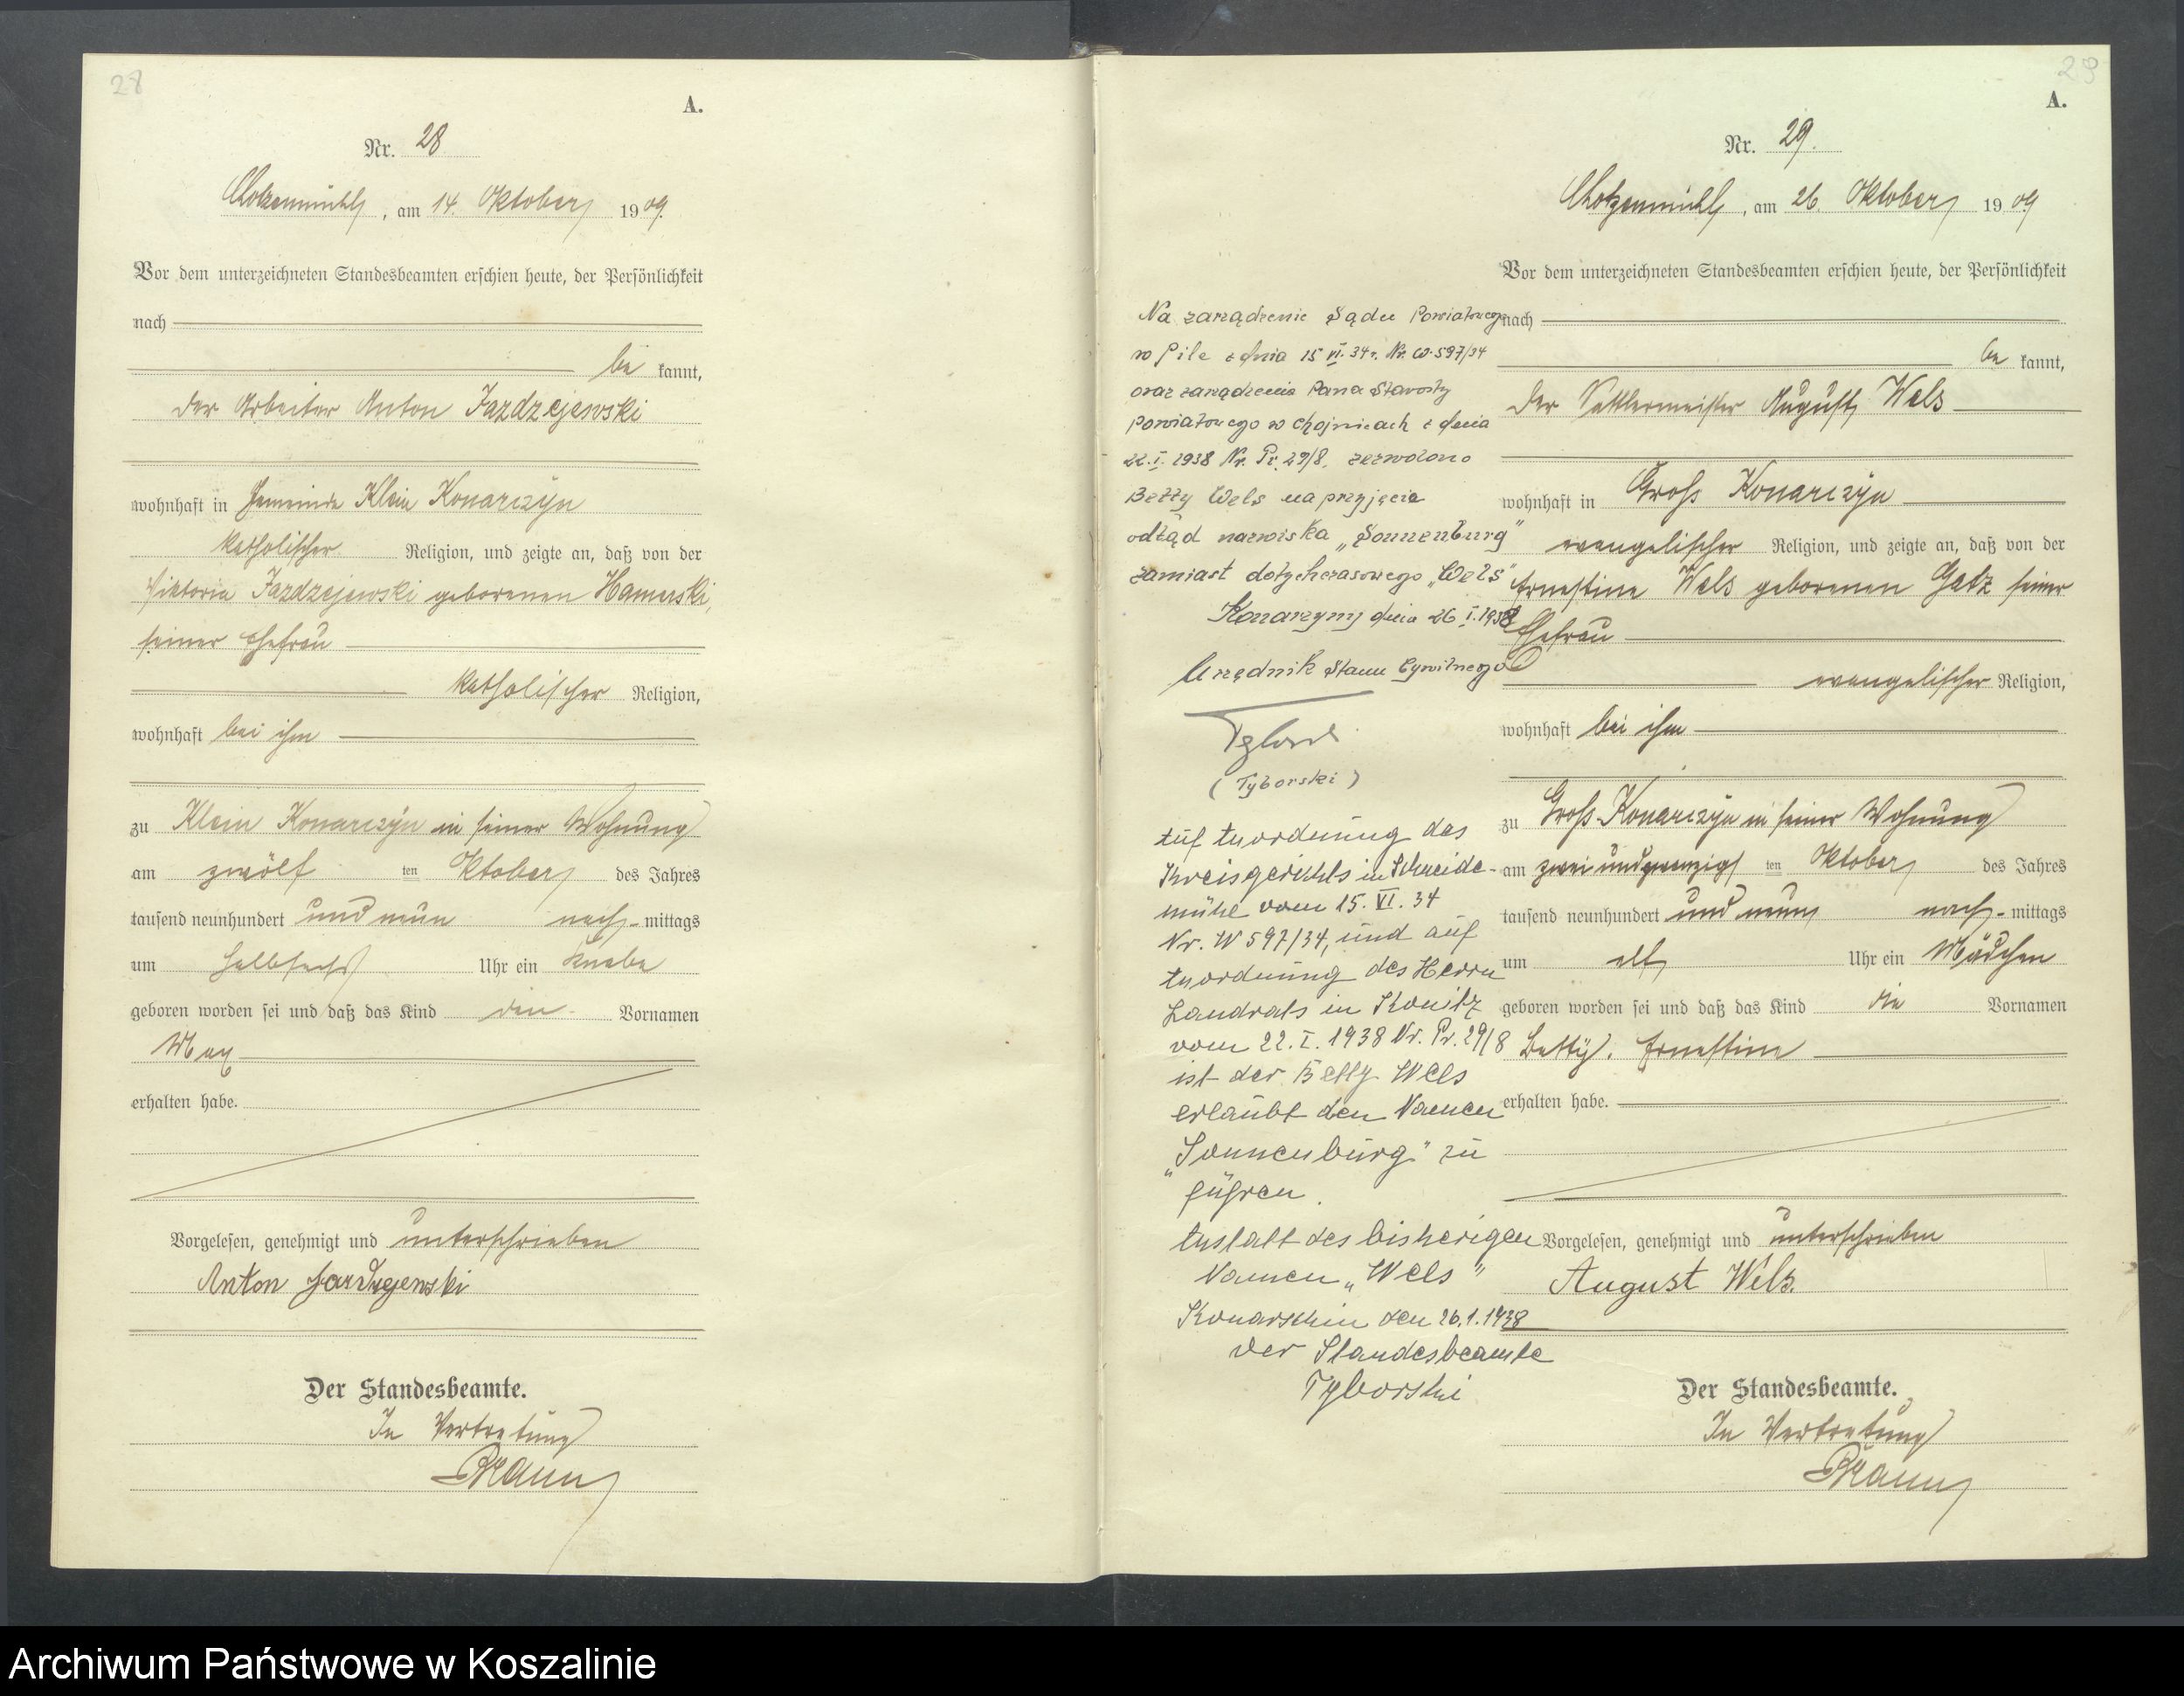 28
A.
Nr. 28
Chotzenmühl, am 14. Oktober 1909.
Vor dem unterzeichneten Standesbeamten erschien heute, der Persönlichkeit
nach
be kannt,
der Arbeiter Anton Jazdzejewski
wohnhaft in Gemeinde Klein Konarczyn
katholischer Religion, und zeigte an, daß von der
Viktoria Jazdzejewski geborenen Hamerski,
seiner Ehefrau
katholischer Religion,
wohnhaft bei ihm
zu Klein Konarczyn in seiner Wohnung
am zwölf ten Oktober des Jahres
tausend neunhundert und neun nach-mittags
um halbsechs Uhr ein Knabe
geboren worden sei und daß das Kind den Vornamen
Max
erhalten habe.
Vorgelesen, genehmigt und unterschrieben
Anton Jazdzejewski
Der Standesbeamte.
In Vertretung
29
A.
Nr. 29.
Chotzenmühl, am 26. Oktober 1909
Vor dem unterzeichneten Standesbeamten erschien heute, der Persönlichkeit
nach
be kannt,
der Sattlermeister August Wels
wohnhaft in Groß Konarczyn
evangelischer Religion, und zeigte an, daß von der
Ernestine Wels geborenen Getz seiner
Ehefrau
evangelischer Religion,
wohnhaft bei ihm
zu Groß-Konarczyn in seiner Wohnung
am zwei und zwanzigs ten Oktober des Jahres
tausend neunhundert und neun nach-mittags
um elf Uhr ein Mädchen
geboren worden sei und daß das Kind die Vornamen
Betty, Ernestine
erhalten habe.
Vorgelesen, genehmigt und unterschrieben
August Wels.
Der Standesbeamte.
In Vertretung
Na zarządzenie Sądu Powiatowego
w Pile z dnia 15 VI. 34 r. Nr. W. 597/34
oraz zarządzenia Pana Starosty
Powiatowego w Chojnicach z dnia
22. I. 1938 Nr. Pr. 29/8, zezwolono
Betty Wels na przyjęcie
odtąd nazwiska „Sonnenburg"
zamiast dotychczasowego „Wels"
Konarzyny dnia 26 I. 1938
Urzędnik Stanu Cywilnego
(Tyborski)
Auf Anordnung des
Kreisgerichts in Schneide-
mühl vom 15. VI. 34
Nr. W 597/34, und auf
Anordnung des Herrn
Landrats in Konitz
vom 22. I. 1938 Nr. Pr. 29/8
ist der Betty Wels
erlaubt den Namen
„Sonnenburg" zu
führen.
Anstatt des bisherigen
Namen „Wels"
Konarschin den 26.1.1938
Der Standesbeamte
Tyborski
Archiwum Państwowe w Koszalinie